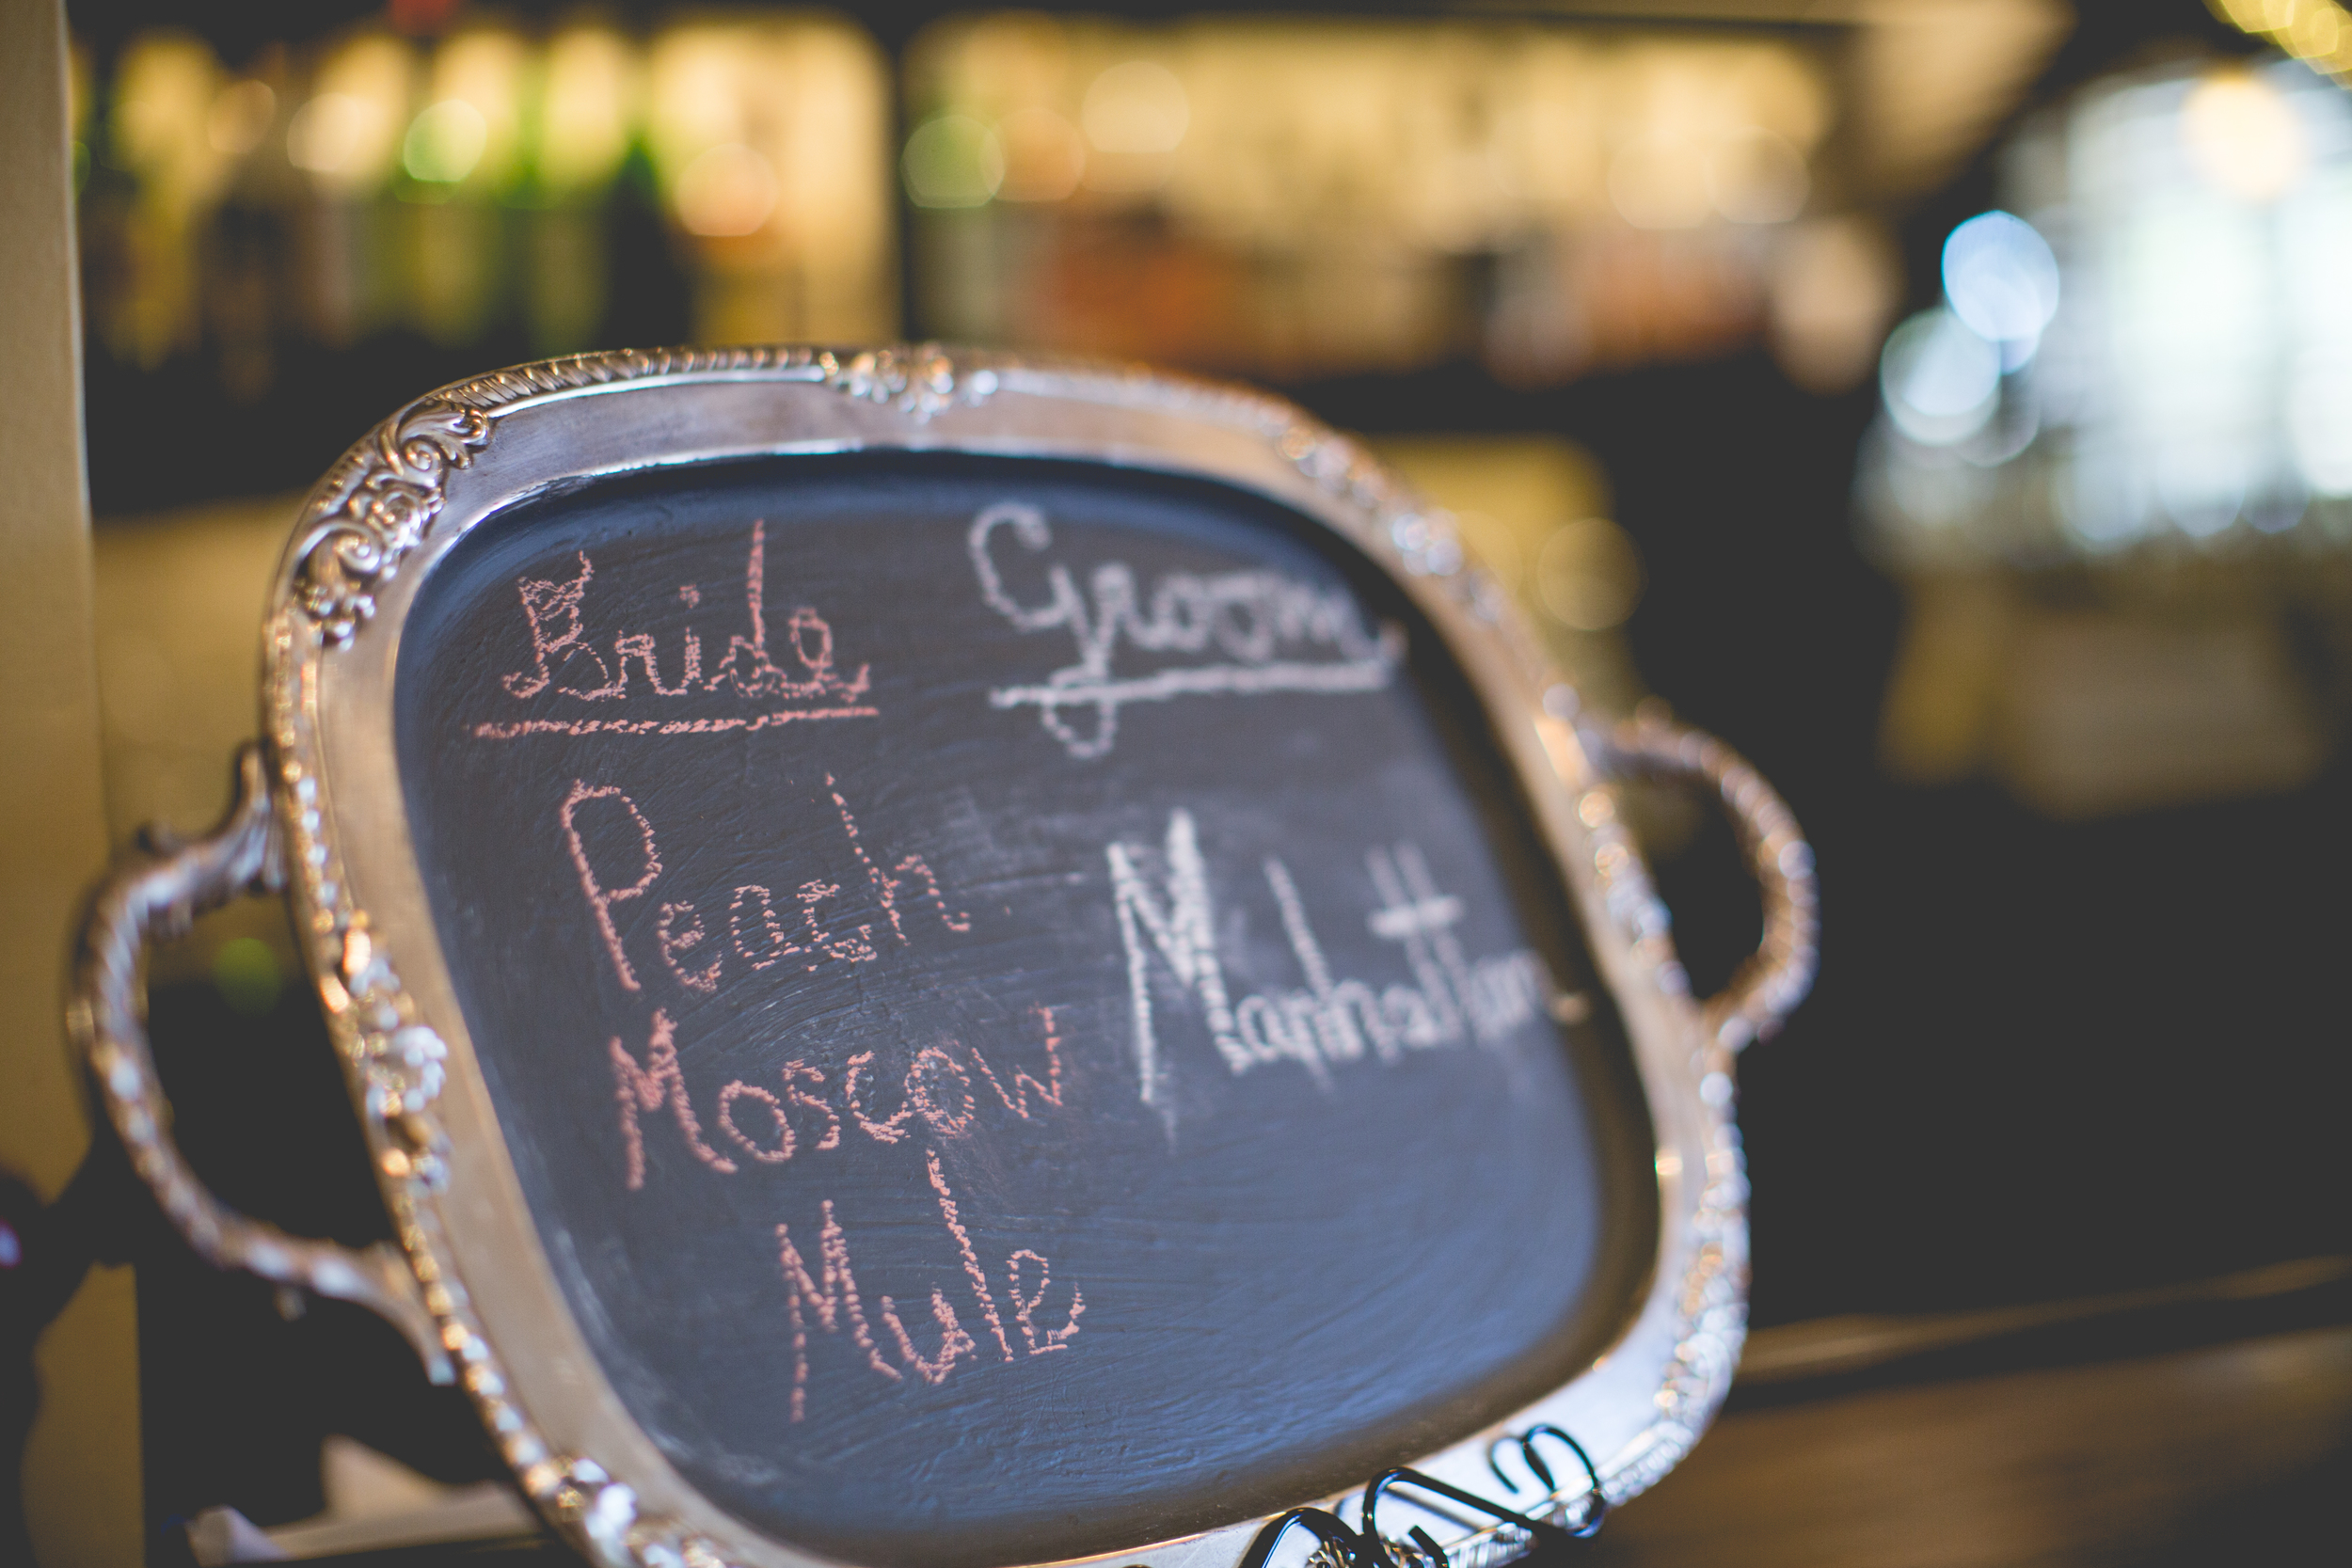 Bride
Peach
Moscow
Mule
Groom
Manhattan